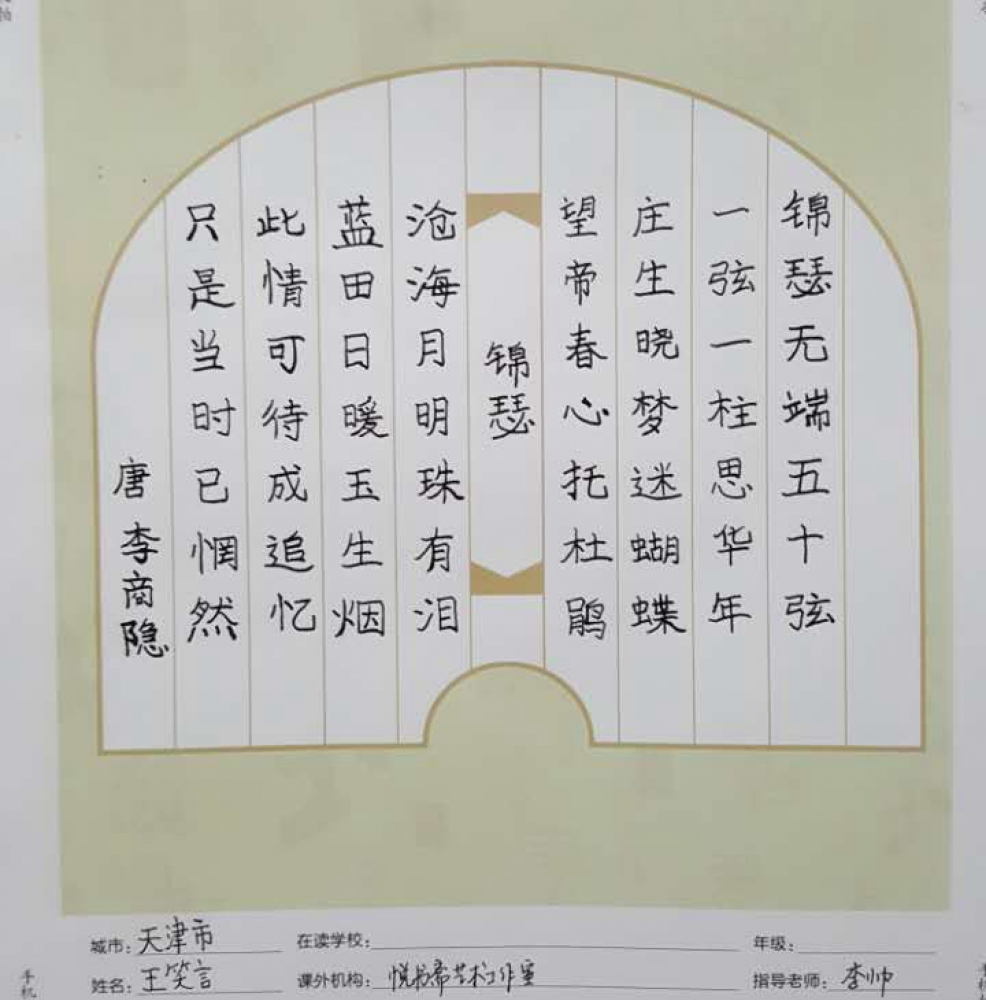 锦瑟无端五十弦
一弦一柱思华年
庄生晓梦迷蝴蝶
望帝春心托杜鹃
锦瑟
沧海月明珠有泪
蓝田日暖玉生烟
此情可待成追忆
只是当时已惘然
唐 李商隐
城市：天津市 在读学校： 年级：
姓名：王笑言 课外机构：悦书斋艺术工作室 指导老师：李帅
手机